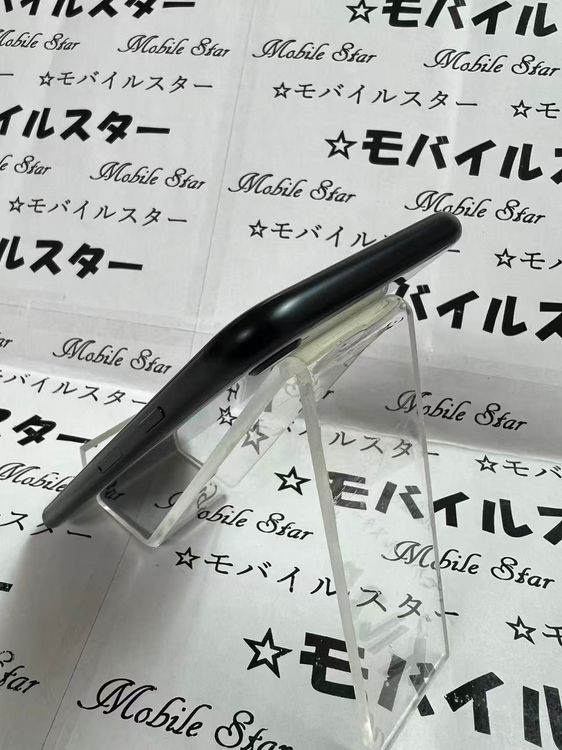 バイルスター
☆モバイル
Mobile Star Mobile Star Mobile Star Mobile Star
☆モバイルスター ☆モバイルスター ☆モ
イルスター
☆モバイル
Star Mobile Star Mobile Star Mobile Star
☆モバイルスター ☆モバイルスター ☆モバ
ルスター
バイル
Mobile Star Mobile Star
バイルスター ☆モバイ
スター
☆モバイル
Mobile Star Mobile Star
スター ☆モバイルスター ☆モバ
☆モバイル
Star Mobile Star